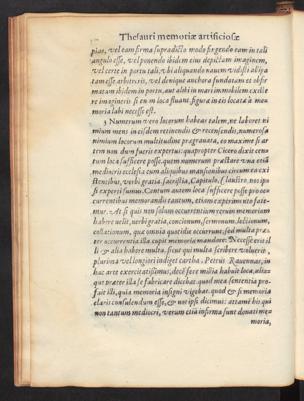 Thesauri memoriæ artificiosæ
pias, vel eam firma supradicto modo fingendo eam in tali
angulo esse, vel ponendo ibidem eius depictam imaginem,
vel certe in portu tali, vbi aliquando nauem vidisti aliqä
tam esse arbitreris, vel denique anchora fundatam et obfir
matam ibidem in portu, aut alibi in mari immobilem existe
re imagineris si en m loca fluant, figura in eis locatã à me
moria labi necesse est.
3 Numerum vero locorum habeas talem, ne laboret ni
mium mens in eisdem retinendis & recensendis, numerosa
nimium locorum multitudine prægrauata, eo maxime si ar
tem non dum fueris expertus, quapropter Cicero dixit cen
tum loca sufficere posse, quem numerum præstare vna etiä
mediocris ecclesia cum aliquibus mansionibus circum ea exi
stentibus, verbi gratia, sacristia, Capitulo, Claustro, nos ipsi
experti sumus. Centum autem loca sufficere posse pro oc
currentibus memorandis tantum, etiam experimento fate-
mur. At si quis non solum occurrentium rerum memoriam
habere uelit, verbi gratia, concionum, sermonum, lectionum,
collationum, quæ omnia quotidie occurrunt, sed multa præ
ter occurrentia illa cupit memoriæ mandare: Necesse est il
li & alia habere multa, sicut qui multa scribere voluerit,
plurima vel longiori indiget cartha. Petrus Rauennas, in
hac arte exercitatissimus, decē fere milia habuit loca, alia
quæ præter illa se fabricare dicebat. quod mea sententia pro
fait illi, quia memoria insigni vigebat. quod & si memoria
claris consulendum esse, & nos ipsi dicimus: attamē his, qui
non tantum mediocri, verum etiã infirma sunt donati me-
moria,